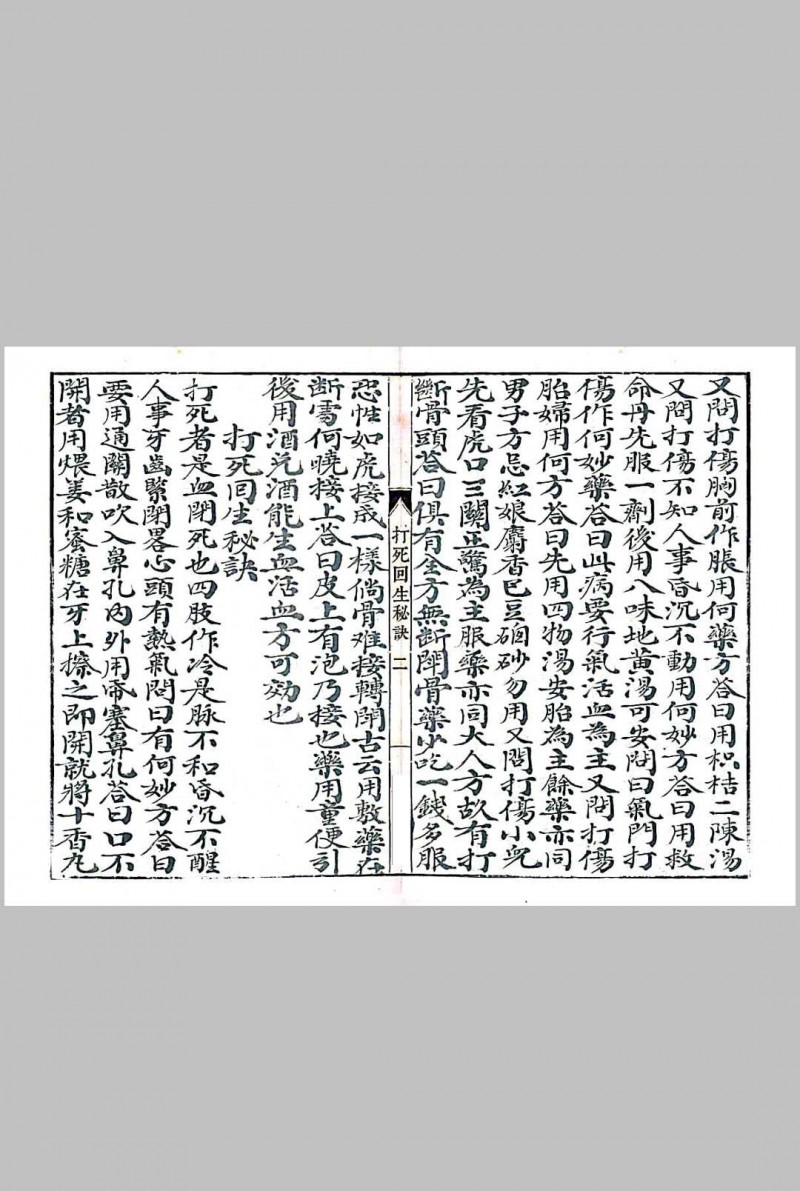 又問打傷胸前作脹用何藥方答曰用枳桔二陳湯
又問打傷不知人事昏沉不動用何妙方答曰用救
命丹先服一劑後用八味地黄湯可安問曰氣門打
傷作何妙藥答曰此病要行氣活血為主又問打傷
胎婦用何方答曰先用四物湯安胎為主餘藥亦同
男子方忌紅娘麝香巴豆硇砂勿用又問打傷小兒
先看虎口三關正驚為主服藥亦同大人方故有打
斷骨頭答曰俱有全方無斷閗骨藥少吃一錢多服
打死回生秘訣 二
恐性如虎接成一樣倘骨难接轉閗古云用敷藥在
断處何曉接上答曰皮上有泡乃接也藥用童便引
後用酒兌酒能生血活血方可効也
打死回生秘訣
打死者是血閉死也四肢作冷是脉不和昏沉不醒
人事牙齒緊閉畧心頭有熱氣問曰有何妙方答曰
要用通關散吹入鼻孔內外用帋塞鼻孔答曰口不
開者用煨姜和蜜糖在牙上擦之即開就將十香丸